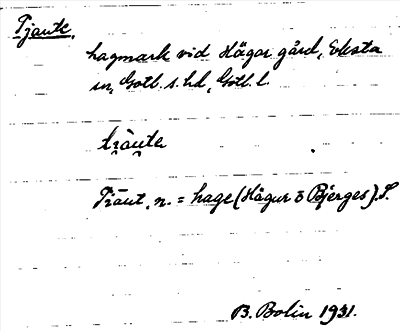 Tjaute,
hagmark vid Hägor gård, Eksta
sn, Gotl. s. hd, Gotl. l.
Tiäut, n. = hage (Hägur o Bjerges). S.
B. Bolin 1931.